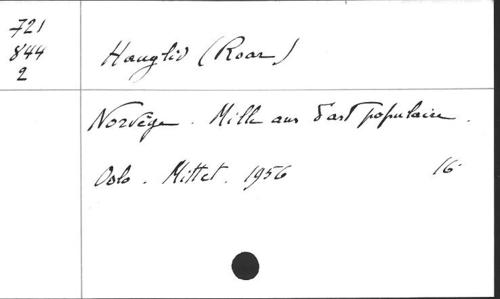 721
844
2
Hauglid (Roar)
Norvège. Mille ans d'art populaire.
Oslo. Mittet. 1956 16°